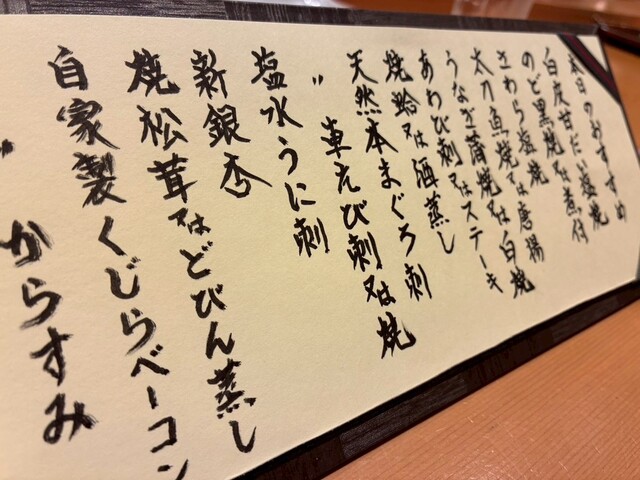 本日のおすすめ
白皮甘だい塩焼
のど黒焼又は煮付
さわら塩焼
太刀魚焼又は唐揚
うなぎ蒲焼又は白焼
あわび刺又はステーキ
焼蛤又は酒蒸し
天然本まぐろ刺
〃 車えび刺又は焼
塩水うに刺
新銀杏
焼松茸又はどびん蒸し
自家製くじらベーコン
〃 からすみ